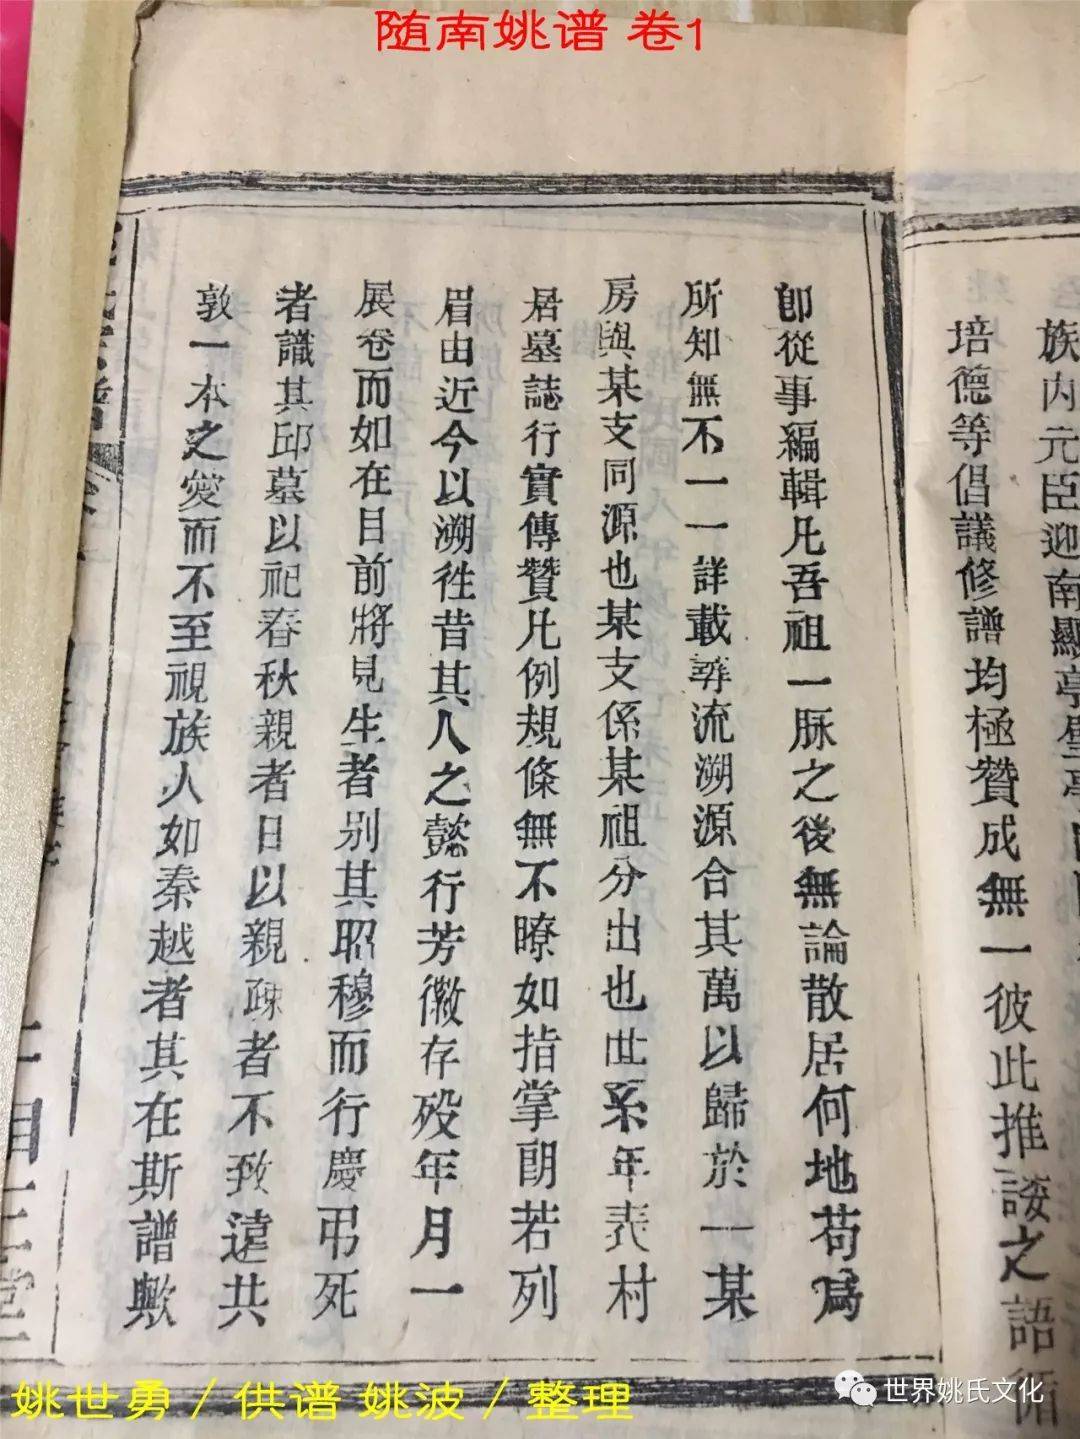 随南姚谱 卷1
族内元臣迎南顯亭
培德等倡議修譜均極贊成無一彼此推諉之語
卽從事編輯凡吾祖一脉之後無論散居何地苟爲
所知無不一一詳載尋流溯源合其萬以歸於一某
房與某支同源也某支係某祖分出也世系年表村
居墓誌行實傳贊凡例規條無不瞭如指掌朗若列
眉由近今以溯徃昔其人之懿行芳徽存殁年月一
展卷而如在目前將見生者别其昭穆而行慶弔死
者識其邱墓以祀春秋親者日以親疎者不致遠共
敦一本之愛而不至視族人如秦越者其在斯譜歟
姚世勇／供谱 姚波／整理
世界姚氏文化